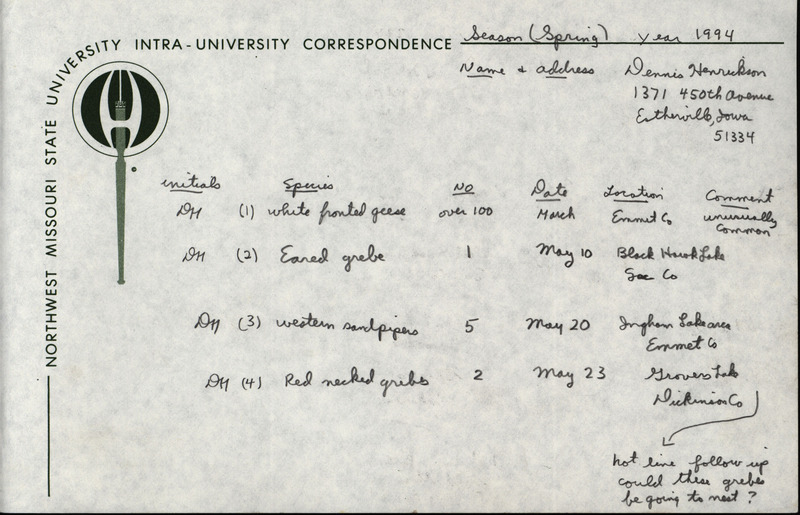 NORTHWEST MISSOURI STATE UNIVERSITY INTRA-UNIVERSITY CORRESPONDENCE
Season (Spring) year 1994
Name & address Dennis Henrickson
1371 450th Avenue
Estherville, Iowa
51334
initials Species No Date Location Comment
DH (1) white fronted geese over 100 March Emmet Co unusually common
DH (2) Eared grebe 1 May 10 Black Hawk Lake
Sac Co
DH (3) western sandpipers 5 May 20 Ingham Lake area
Emmet Co
DH (4) Red necked grebes 2 May 23 Grovers Lake
Dickinson Co
hot line follow up
could these grebes
be going to nest?